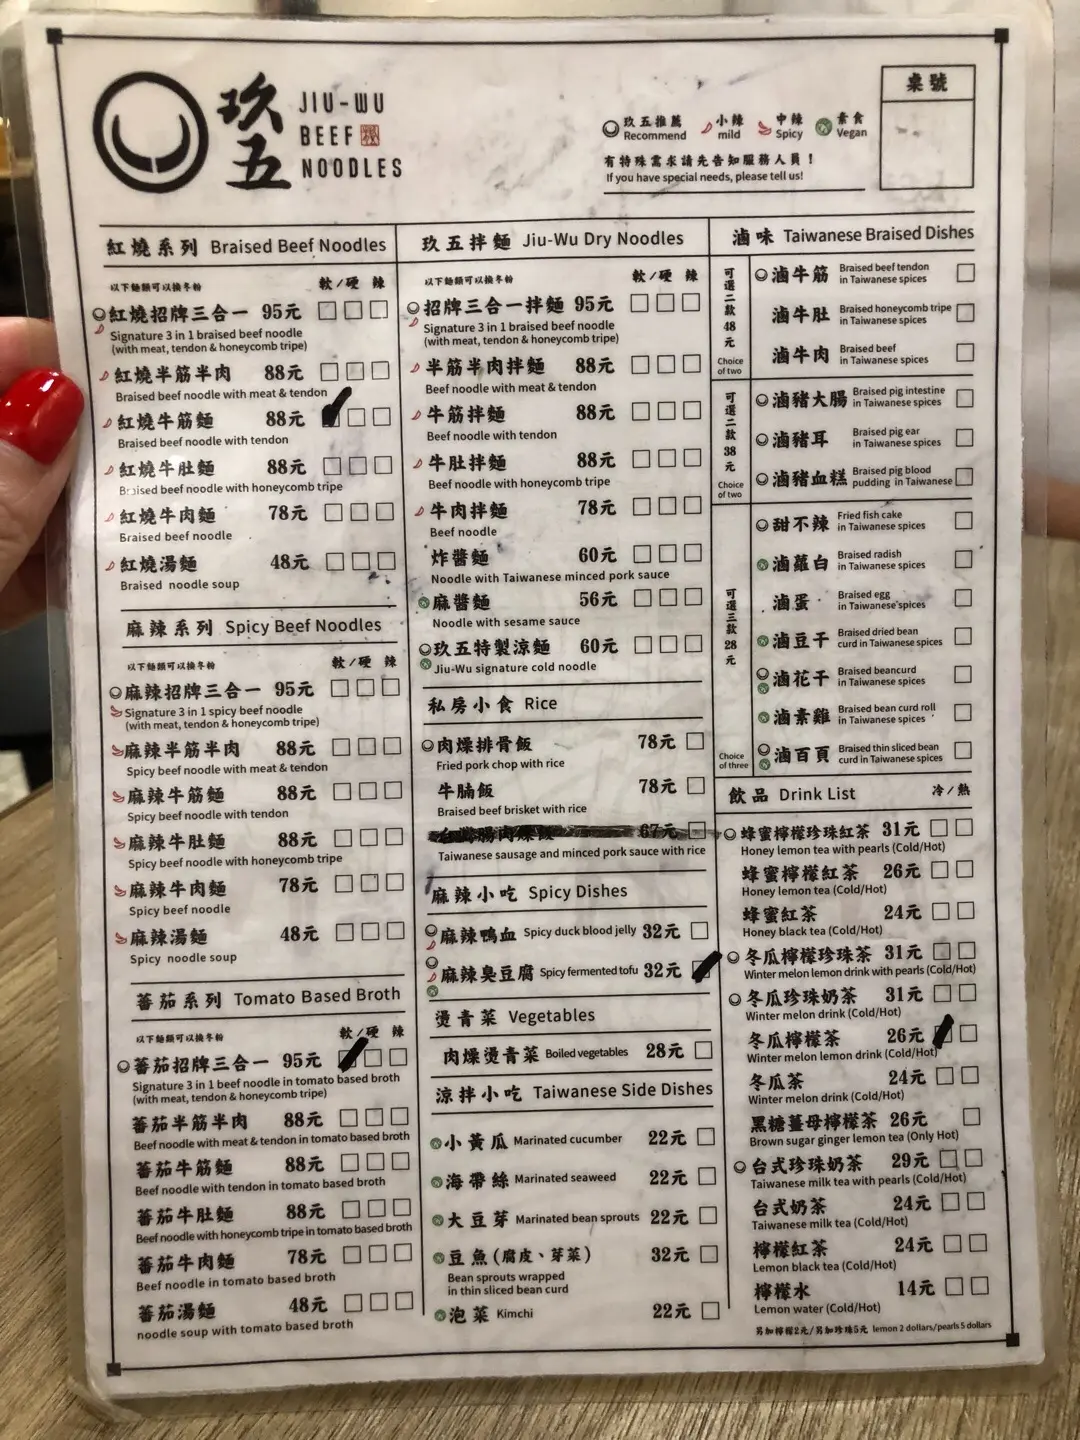 玖五
JIU-WU
BEEF
NOODLES
玖五推薦 Recommend
小辣 mild
中辣 Spicy
素食 Vegan
有特殊需求請先告知服務人員！
If you have special needs, please tell us!
桌號
紅燒系列 Braised Beef Noodles
以下麵類可以換冬粉 軟/硬 辣
紅燒招牌三合一 95元
Signature 3 in 1 braised beef noodle
(with meat, tendon & honeycomb tripe)
紅燒半筋半肉 88元
Braised beef noodle with meat & tendon
紅燒牛筋麵 88元
Braised beef noodle with tendon
紅燒牛肚麵 88元
Braised beef noodle with honeycomb tripe
紅燒牛肉麵 78元
Braised beef noodle
紅燒湯麵 48元
Braised noodle soup
麻辣系列 Spicy Beef Noodles
以下麵類可以換冬粉 軟/硬 辣
麻辣招牌三合一 95元
Signature 3 in 1 spicy beef noodle
(with meat, tendon & honeycomb tripe)
麻辣半筋半肉 88元
Spicy beef noodle with meat & tendon
麻辣牛筋麵 88元
Spicy beef noodle with tendon
麻辣牛肚麵 88元
Spicy beef noodle with honeycomb tripe
麻辣牛肉麵 78元
Spicy beef noodle
麻辣湯麵 48元
Spicy noodle soup
蕃茄系列 Tomato Based Broth
以下麵類可以換冬粉 軟/硬 辣
蕃茄招牌三合一 95元
Signature 3 in 1 beef noodle in tomato based broth
(with meat, tendon & honeycomb tripe)
蕃茄半筋半肉 88元
Beef noodle with meat & tendon in tomato based broth
蕃茄牛筋麵 88元
Beef noodle with tendon in tomato based broth
蕃茄牛肚麵 88元
Beef noodle with honeycomb tripe in tomato based broth
蕃茄牛肉麵 78元
Beef noodle in tomato based broth
蕃茄湯麵 48元
noodle soup with tomato based broth
玖五拌麵 Jiu-Wu Dry Noodles
以下麵類可以換冬粉 軟/硬 辣
招牌三合一拌麵 95元
Signature 3 in 1 braised beef noodle
(with meat, tendon & honeycomb tripe)
半筋半肉拌麵 88元
Beef noodle with meat & tendon
牛筋拌麵 88元
Beef noodle with tendon
牛肚拌麵 88元
Beef noodle with honeycomb tripe
牛肉拌麵 78元
Beef noodle
炸醬麵 60元
Noodle with Taiwanese minced pork sauce
麻醬麵 56元
Noodle with sesame sauce
玖五特製涼麵 60元
Jiu-Wu signature cold noodle
私房小食 Rice
肉燥排骨飯 78元
Fried pork chop with rice
牛腩飯 78元
Braised beef brisket with rice
67元
Taiwanese sausage and minced pork sauce with rice
麻辣小吃 Spicy Dishes
麻辣鴨血 Spicy duck blood jelly 32元
麻辣臭豆腐 Spicy fermented tofu 32元
燙青菜 Vegetables
肉燥燙青菜 Boiled vegetables 28元
涼拌小吃 Taiwanese Side Dishes
小黃瓜 Marinated cucumber 22元
海帶絲 Marinated seaweed 22元
大豆芽 Marinated bean sprouts 22元
豆魚(腐皮、芽菜) 32元
Bean sprouts wrapped
in thin sliced bean curd
泡菜 Kimchi 22元
滷味 Taiwanese Braised Dishes
可選二款48元
Choice of two
滷牛筋 Braised beef tendon in Taiwanese spices
滷牛肚 Braised honeycomb tripe in Taiwanese spices
滷牛肉 Braised beef in Taiwanese spices
可選二款38元
Choice of two
滷豬大腸 Braised pig intestine in Taiwanese spices
滷豬耳 Braised pig ear in Taiwanese spices
滷豬血糕 Braised pig blood pudding in Taiwanese spices
可選三款28元
Choice of three
甜不辣 Fried fish cake in Taiwanese spices
滷蘿白 Braised radish in Taiwanese spices
滷蛋 Braised egg in Taiwanese spices
滷豆干 Braised dried bean curd in Taiwanese spices
滷花干 Braised beancurd in Taiwanese spices
滷素雞 Braised bean curd roll in Taiwanese spices
滷百頁 Braised thin sliced bean curd in Taiwanese spices
飲品 Drink List 冷/熱
蜂蜜檸檬珍珠紅茶 31元
Honey lemon tea with pearls (Cold/Hot)
蜂蜜檸檬紅茶 26元
Honey lemon tea (Cold/Hot)
蜂蜜紅茶 24元
Honey black tea (Cold/Hot)
冬瓜檸檬珍珠茶 31元
Winter melon lemon drink with pearls (Cold/Hot)
冬瓜珍珠奶茶 31元
Winter melon drink (Cold/Hot)
冬瓜檸檬茶 26元
Winter melon lemon drink (Cold/Hot)
冬瓜茶 24元
Winter melon drink (Cold/Hot)
黑糖薑母檸檬茶 26元
Brown sugar ginger lemon tea (Only Hot)
台式珍珠奶茶 29元
Taiwanese milk tea with pearls (Cold/Hot)
台式奶茶 24元
Taiwanese milk tea (Cold/Hot)
檸檬紅茶 24元
Lemon black tea (Cold/Hot)
檸檬水 14元
Lemon water (Cold/Hot)
另加檸檬2元/另加珍珠5元 lemon 2 dollars/pearls 5 dollars